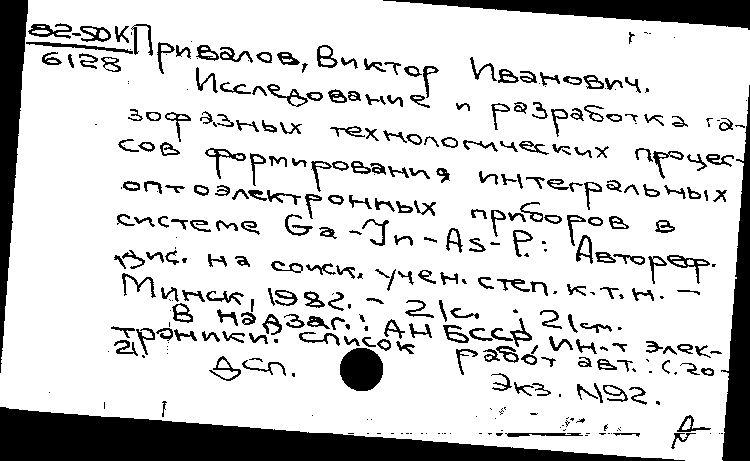 82-5ОК Привалов, Виктор Иванович.
6128
Исследование и разработка га-
зофазных технологических процес-
сов формирования интегральных
оптоэлектронных приборов в
системе Ga-In-As-P.: Автореф.
дис. на соиск. учен. степ. к.т.н. –
Минск, 1982. – 21с. ; 21см.
В надзаг.: АН БССР, Ин-т элек-
троники. Список работ авт.: с.20-
21.
ДСП.
Экз. N92.